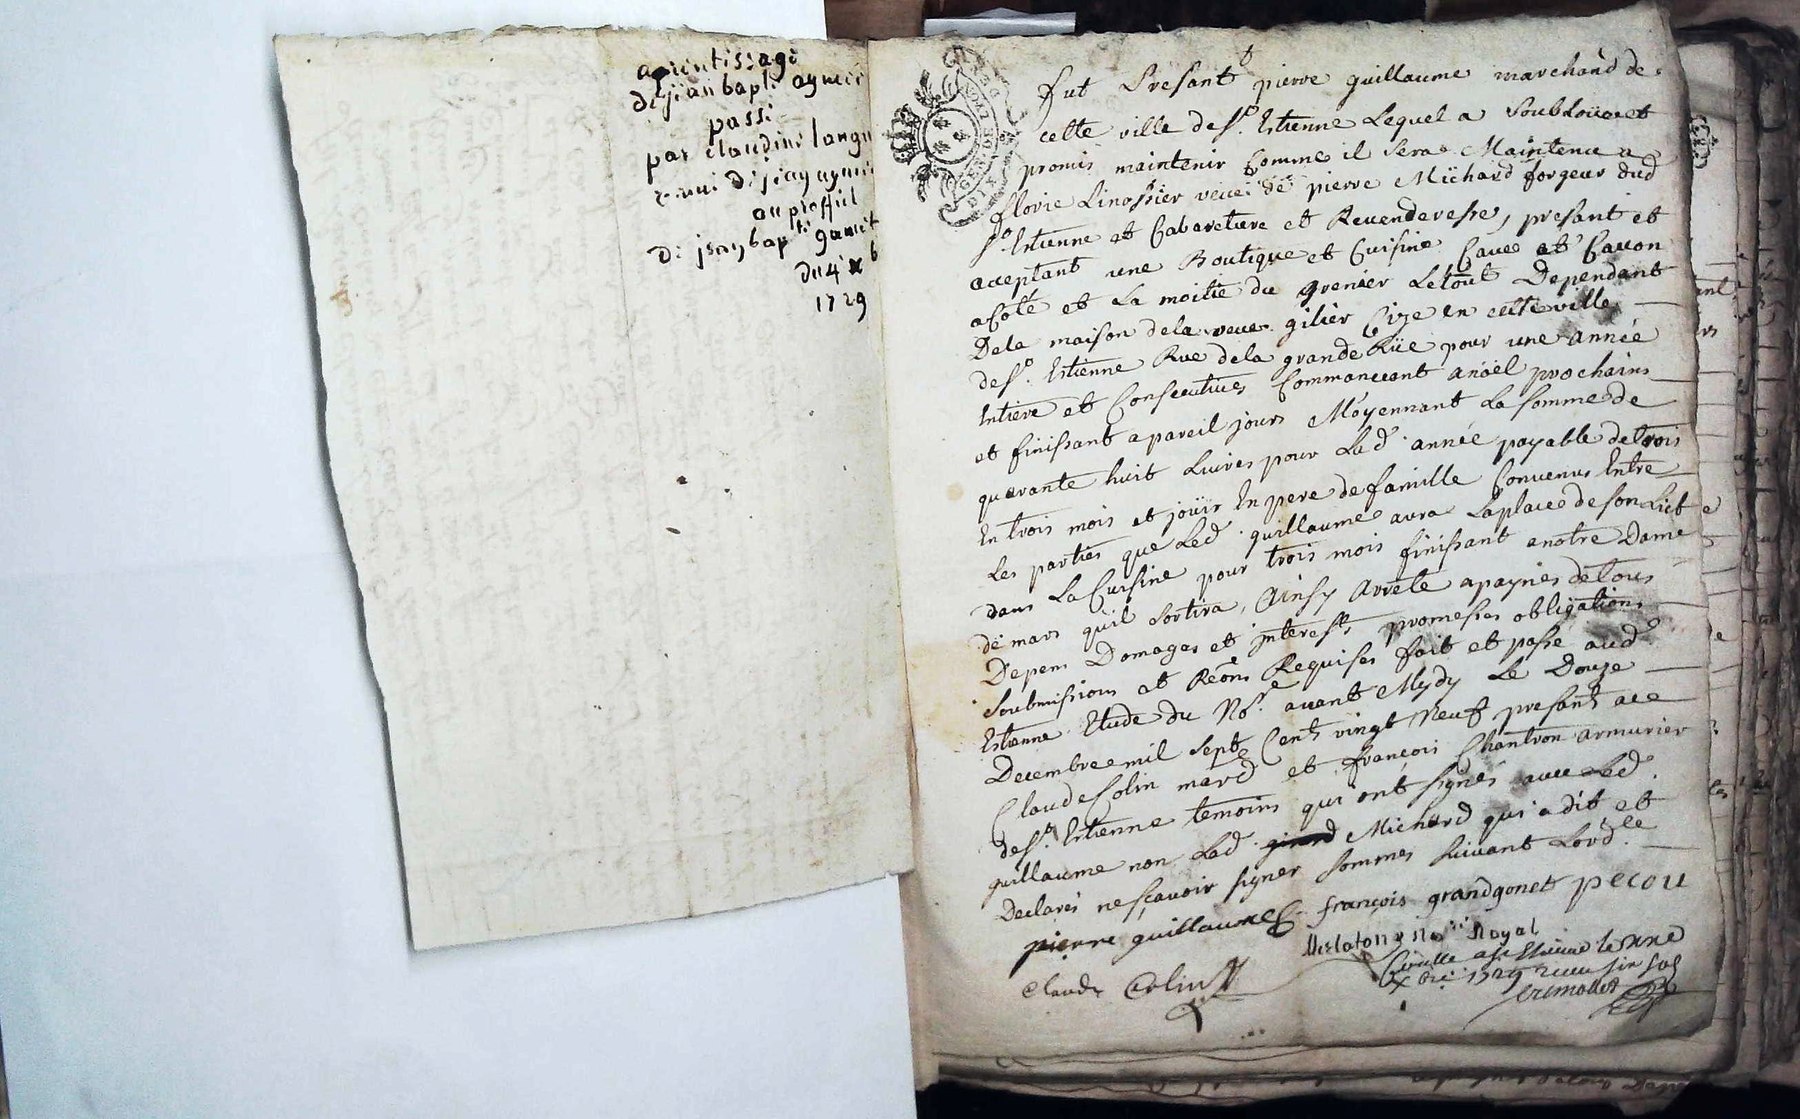 aprentissage
de jean bapt. aymier
passé
par claudine
de jean aymier
au proffit
de jean bapt.
du 4 xb
1729
GEN. DE LYON
DIX DEN
fut Presant pierre guillaume marchand de
cette ville de St. Estienne Lequel a soubLoüe et
promis maintenir Comme il sera Maintenu a
florie Linossier veuë de pierre Michard forgeur dud
St. Estienne et Cabaretiere et Revenderesse, presant et
aceptant une Boutique et Cuisine Cave et Cavon
a Coté et La moitie du grenier Le tout Dependant
De la maison de la veuve gilier Cize en cette ville
de St. Estienne Rue de la grande Rüe pour une année
Entiere et Consecutives Commancant a noël prochains
et finissant a pareil jours Moyennant La somme de
quarante huit Livres pour Lad. année payable de trois
En trois mois et joüir En pere de famille Convenus Entre
Les parties que Led. guillaume aura La place de son Lict
dans La Cuisine pour trois mois finissant a notre Dame
de mars qu'il sortira, Ainsy Arreté a paynes de tous
Depens Domages et jnterests promesses obligations
soubmissions et Reons Requises fait et passé aud.
Estienne Etude du Nore. avant Mydy Le Douze
Decembre mil sept Cents vingt Neuf presants
Claude Colin marcd et françois Chantron armurier
de St. Estienne temoins qui ont signés avec Led.
guillaume non Lad. Michard qui a dit et
Declarés ne sçavoir signer sommes suivant Lord.ce
pierre guillaume françois grandgonet pecou
Claude Colin
Royal
Con.lle a St Etienne le
Xbre 1729 receu six sols